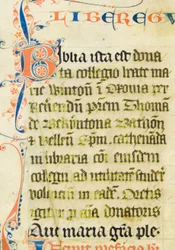 LIBER EGV
Biblia ista est dona
ta collegio beate marie
wintoñ i Oxonia per
Reuerendū p̄rem Thoma
de Bekyntona Bathoñ
& Wellen̄ Ep̄m. cathenāda
in libraria eiusdem
collegii ad utilitatē studēt
voluntiū in eadē. Dictis
igitur p aīa donatoris
Aue maria grā ple